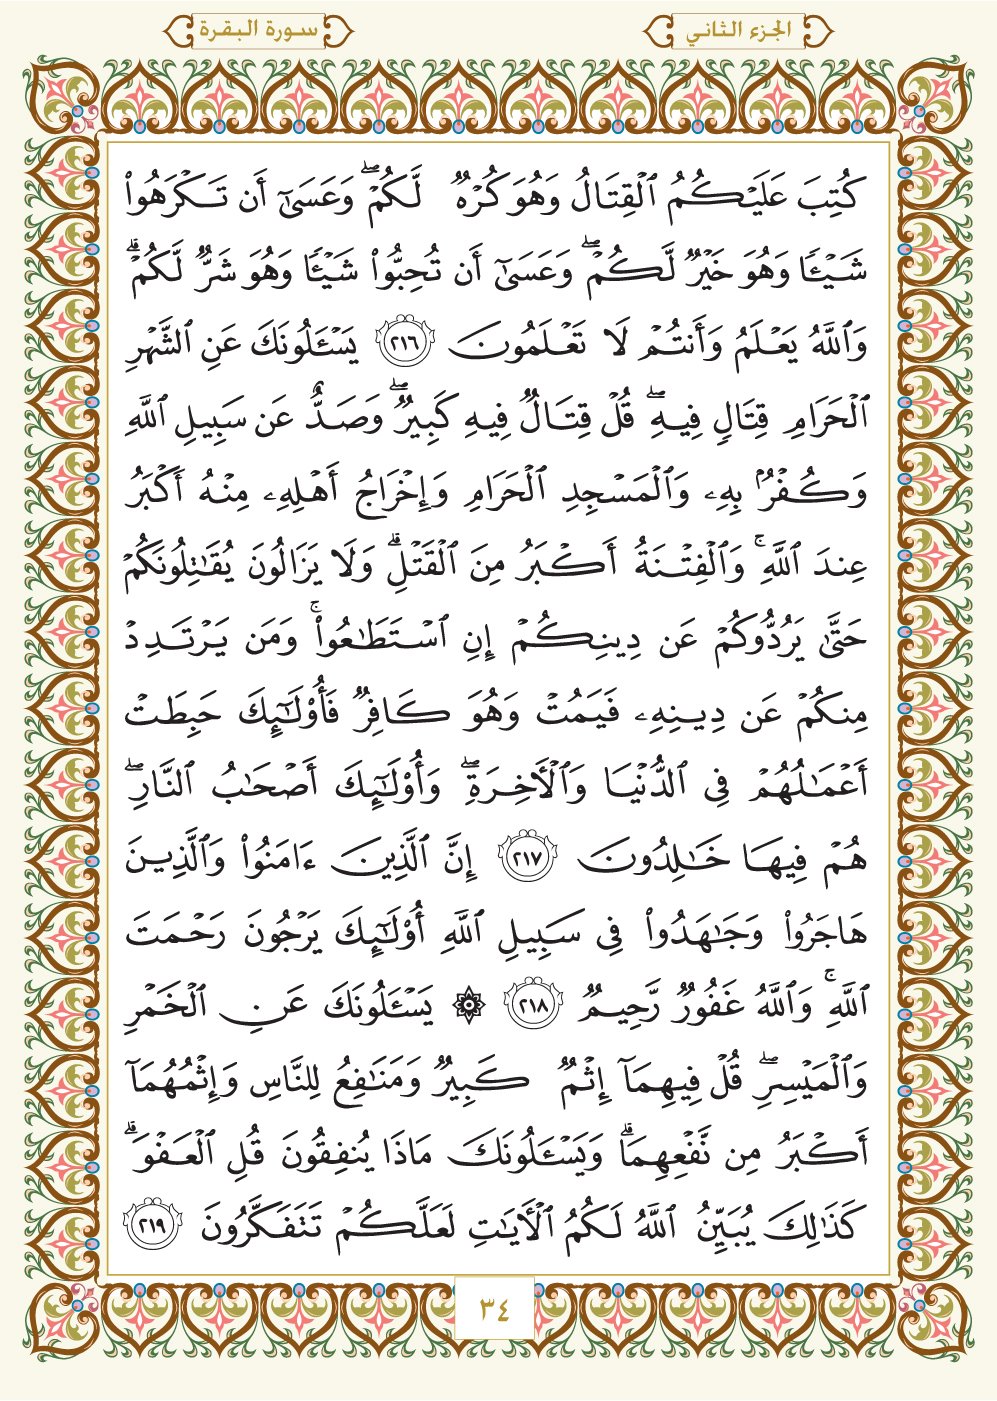 الجزء الثاني
سورة البقرة
كُتِبَ عَلَيْكُمُ ٱلْقِتَالُ وَهُوَ كُرْهٌ لَّكُمْ ۖ وَعَسَىٰٓ أَن تَكْرَهُوا۟
شَيْـًٔا وَهُوَ خَيْرٌ لَّكُمْ ۖ وَعَسَىٰٓ أَن تُحِبُّوا۟ شَيْـًٔا وَهُوَ شَرٌّ لَّكُمْ ۗ
وَٱللَّهُ يَعْلَمُ وَأَنتُمْ لَا تَعْلَمُونَ ٢١٦ يَسْـَٔلُونَكَ عَنِ ٱلشَّهْرِ
ٱلْحَرَامِ قِتَالٍ فِيهِ ۖ قُلْ قِتَالٌ فِيهِ كَبِيرٌ ۖ وَصَدٌّ عَن سَبِيلِ ٱللَّهِ
وَكُفْرٌۢ بِهِۦ وَٱلْمَسْجِدِ ٱلْحَرَامِ وَإِخْرَاجُ أَهْلِهِۦ مِنْهُ أَكْبَرُ
عِندَ ٱللَّهِ ۚ وَٱلْفِتْنَةُ أَكْبَرُ مِنَ ٱلْقَتْلِ ۗ وَلَا يَزَالُونَ يُقَـٰتِلُونَكُمْ
حَتَّىٰ يَرُدُّوكُمْ عَن دِينِكُمْ إِنِ ٱسْتَطَـٰعُوا۟ ۚ وَمَن يَرْتَدِدْ
مِنكُمْ عَن دِينِهِۦ فَيَمُتْ وَهُوَ كَافِرٌ فَأُو۟لَـٰٓئِكَ حَبِطَتْ
أَعْمَـٰلُهُمْ فِى ٱلدُّنْيَا وَٱلْـَٔاخِرَةِ ۖ وَأُو۟لَـٰٓئِكَ أَصْحَـٰبُ ٱلنَّارِ ۖ
هُمْ فِيهَا خَـٰلِدُونَ ٢١٧ إِنَّ ٱلَّذِينَ ءَامَنُوا۟ وَٱلَّذِينَ
هَاجَرُوا۟ وَجَـٰهَدُوا۟ فِى سَبِيلِ ٱللَّهِ أُو۟لَـٰٓئِكَ يَرْجُونَ رَحْمَتَ
ٱللَّهِ ۚ وَٱللَّهُ غَفُورٌ رَّحِيمٌ ٢١٨ ۞ يَسْـَٔلُونَكَ عَنِ ٱلْخَمْرِ
وَٱلْمَيْسِرِ ۖ قُلْ فِيهِمَآ إِثْمٌ كَبِيرٌ وَمَنَـٰفِعُ لِلنَّاسِ وَإِثْمُهُمَآ
أَكْبَرُ مِن نَّفْعِهِمَا ۗ وَيَسْـَٔلُونَكَ مَاذَا يُنفِقُونَ قُلِ ٱلْعَفْوَ ۗ
كَذَٰلِكَ يُبَيِّنُ ٱللَّهُ لَكُمُ ٱلْـَٔايَـٰتِ لَعَلَّكُمْ تَتَفَكَّرُونَ ٢١٩
٣٤